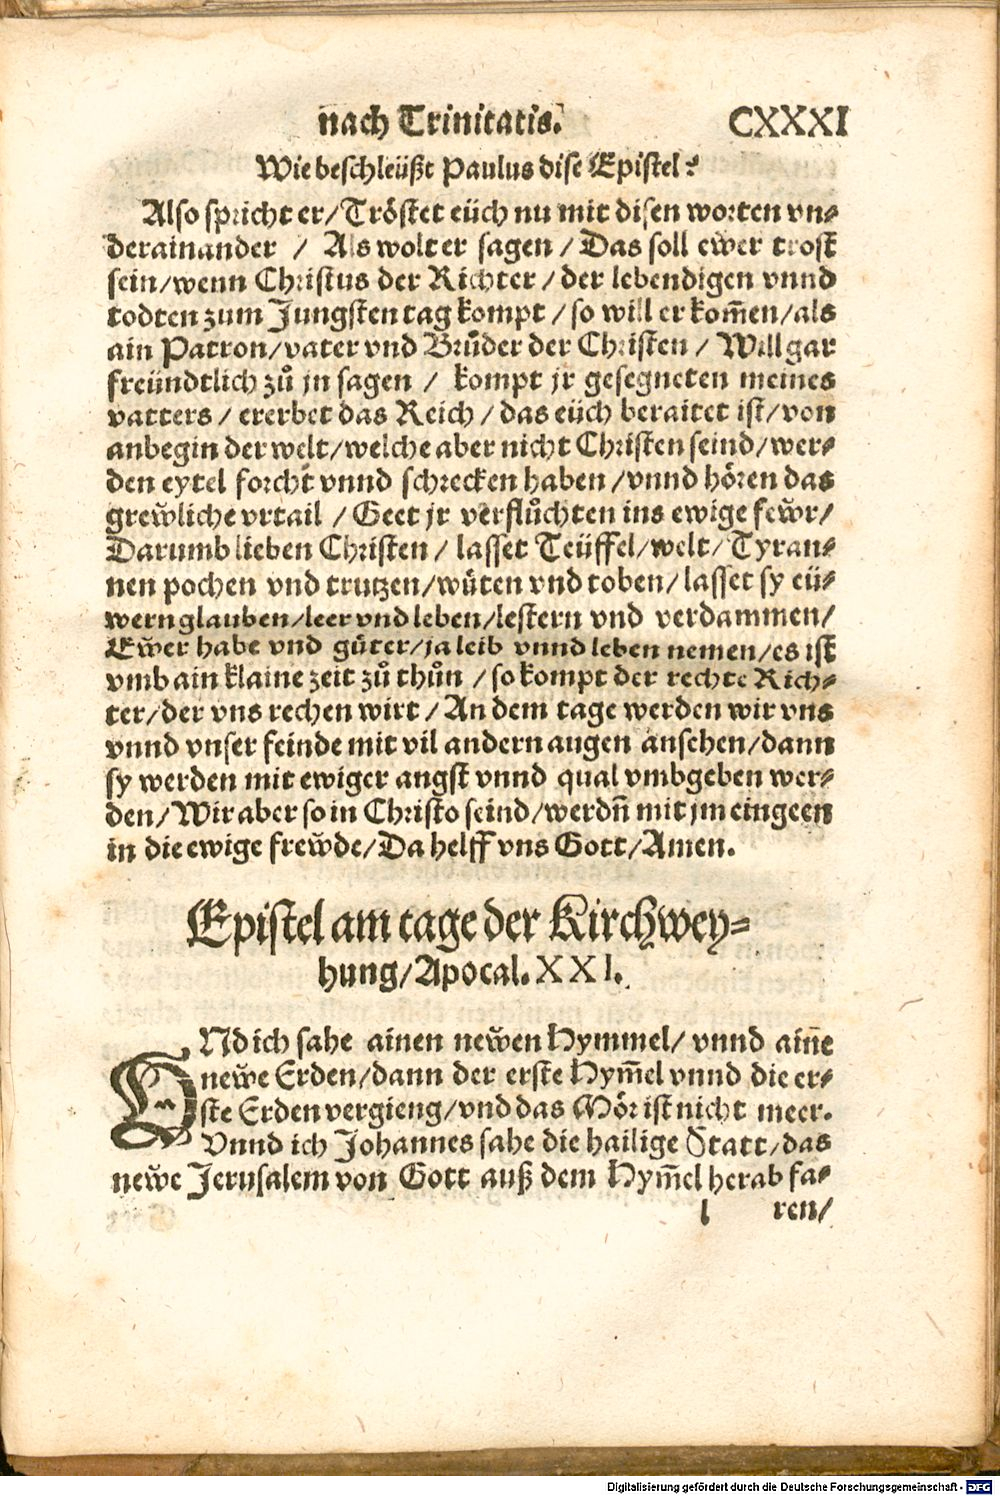 nach Trinitatis. CXXXI
Wie beschleüßt Paulus dise Epistel?
Also spricht er/Tröstet eüch nu mit disen worten vn⸗
derainander / Als wolt er sagen / Das soll ewer trost
sein/wenn Christus der Richter / der lebendigen vnnd
todten zum Jungsten tag kompt / so will er kom̄en/als
ain Patron/vater vnd Brůder der Christen / Will gar
freündtlich zů jn sagen / kompt jr gesegneten meines
vatters / ererbet das Reich / das eüch beraitet ist/von
anbegin der welt/welche aber nicht Christen seind/wer⸗
den eytel forcht vnnd schrecken haben /vnnd hören das
grewͤliche vrtail / Geet jr verflůchten ins ewige fewͤr/
Darumb lieben Christen / lasset Teüffel/welt/Tyran⸗
nen pochen vnd trutzen/wüten vnd toben/lasset sy eü⸗
wern glauben/leer vnd leben/lestern vnd verdammen/
Ewͤer habe vnd güter/ja leib vnnd leben nemen/es ist
vmb ain klaine zeit zů thůn /so kompt der rechte Rich⸗
ter/der vns rechen wirt /An dem tage werden wir vns
vnnd vnser feinde mit vil andern augen ansehen/dann
sy werden mit ewiger angst vnnd qual vmbgeben wer⸗
den/Wir aber so in Christo seind/werdn̄ mit jm eingeen
in die ewige frewͤde/Da helff vns Gott/Amen.
Epistel am tage der Kirchwey⸗
hung/Apocal.XXI.
VNd ich sahe ainen newͤen Hymmel/ vnnd ain̄e
newͤe Erden/dann der erste Hym̄el vnnd die er⸗
ste Erden vergieng/vnd das Mör ist nicht meer.
Vnnd ich Johannes sahe die hailige Statt/das
newͤe Jerusalem von Gott auß dem Hym̄el herab fa⸗
l ren/
Digitalisierung gefördert durch die Deutsche Forschungsgemeinschaft - DFG